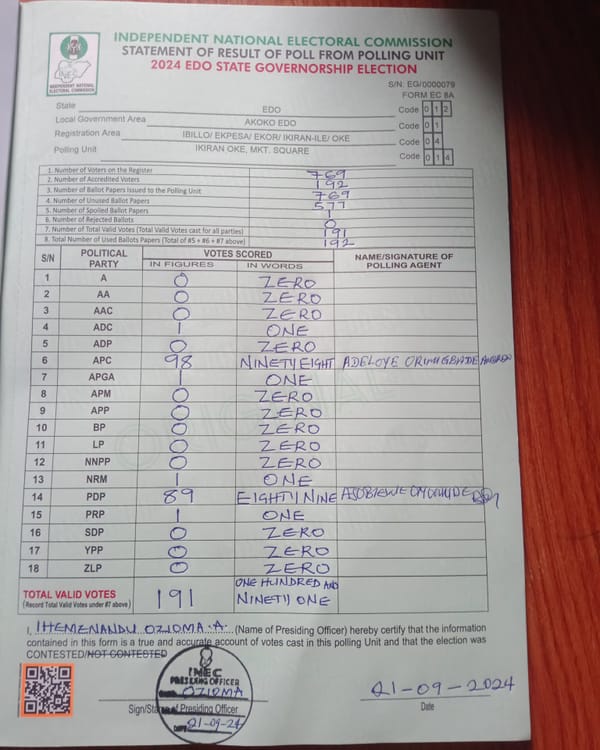 INDEPENDENT NATIONAL ELECTORAL COMMISSION
STATEMENT OF RESULT OF POLL FROM POLLING UNIT
2024 EDO STATE GOVERNORSHIP ELECTION
INEC
INDEPENDENT NATIONAL
ELECTORAL COMMISSION
S/N: EG/0000079
FORM EC 8A
State EDO Code 0 1 2
Local Government Area AKOKO EDO Code 0 1
Registration Area IBILLO/ EKPESA/ EKOR/ IKIRAN-ILE/ OKE Code 0 4
Polling Unit IKIRAN OKE, MKT. SQUARE Code 0 1 4
1. Number of Voters on the Register 769
2. Number of Accredited Voters 192
3. Number of Ballot Papers Issued to the Polling Unit 769
4. Number of Unused Ballot Papers 577
5. Number of Spoiled Ballot Papers 1
6. Number of Rejected Ballots 0
7. Number of Total Valid Votes (Total Valid Votes cast for all parties) 191
8. Total Number of Used Ballots Papers (Total of #5 + #6 + #7 above) 192
S/N POLITICAL PARTY VOTES SCORED NAME/SIGNATURE OF POLLING AGENT
IN FIGURES IN WORDS
1 A 0 ZERO
2 AA 0 ZERO
3 AAC 0 ZERO
4 ADC 1 ONE
5 ADP 0 ZERO
6 APC 98 NINETY EIGHT ADELOYE
7 APGA 1 ONE
8 APM 0 ZERO
9 APP 0 ZERO
10 BP 0 ZERO
11 LP 0 ZERO
12 NNPP 0 ZERO
13 NRM 1 ONE
14 PDP 89 EIGHTY NINE
15 PRP 1 ONE
16 SDP 0 ZERO
17 YPP 0 ZERO
18 ZLP 0 ZERO
TOTAL VALID VOTES 191 ONE HUNDRED AND
(Record Total Valid Votes under #7 above) NINETY ONE
I, IHEMENANDU OZIOMA .A. (Name of Presiding Officer) hereby certify that the information
contained in this form is a true and accurate account of votes cast in this polling Unit and that the election was
CONTESTED/NOT CONTESTED
INEC
PRESIDING OFFICER
OZIOMA
21-09-24
21-09-2024
Sign/Stamp of Presiding Officer
Date